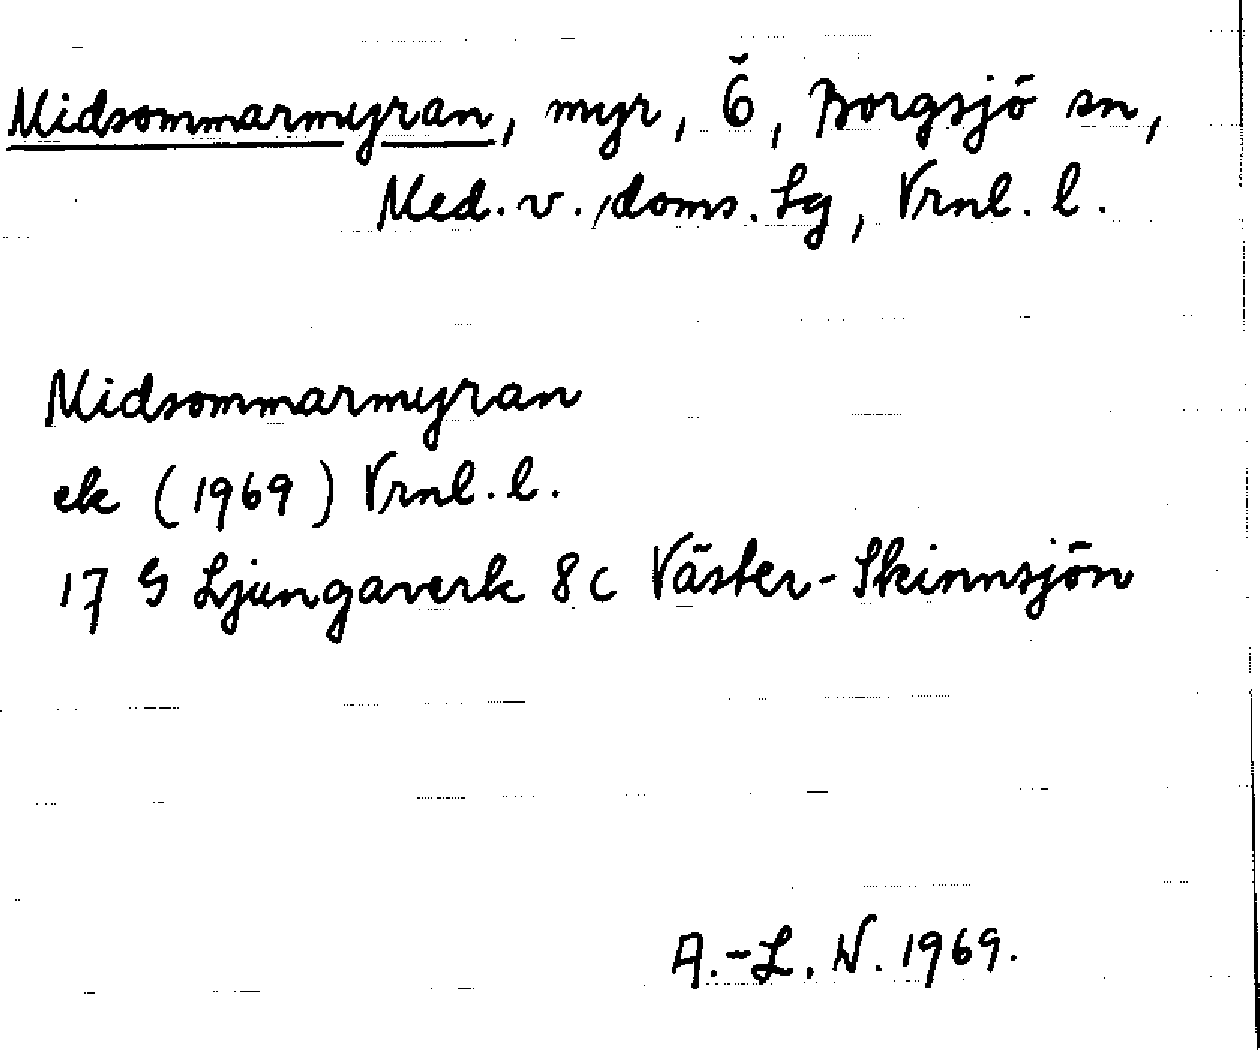 Midsommarmyran, myr, Ö, Borgsjö sn,
Med. v. doms. Lg, Vrnl. l.
Midsommarmyran
ek (1969) Vrnl. l.
17 G Ljungaverk 8 c Väster-Skinnsjön
A.-L. N. 1969.